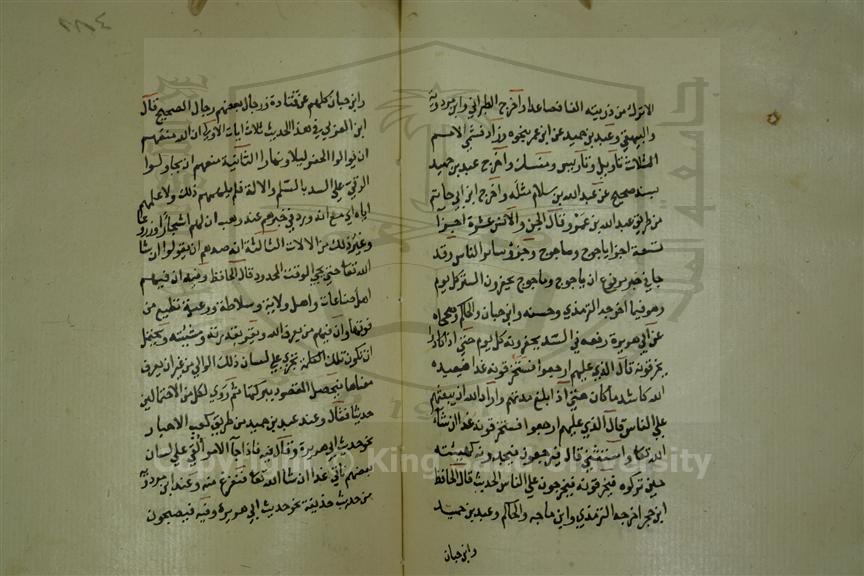 الا ترك من ذريته الفا فصاعدا واخرج الطبراني وابن مردويه
والبيهقي وعبد بن حميد عن ابن عمر بنحوه وزاد فسمى الامم
الثلاث تاويل وتاريس ومنسك واخرج عبد بن حميد
بسند صحيح عن عبد الله بن سلام مثله واخرج ابن ابي حاتم
من طريق عبد الله بن عمرو قال الجن والانس عشرة اجزا
تسعة اجزا ياجوج وماجوج وجزؤ سائر الناس وقد
جا في خبر مرفوع ان ياجوج وماجوج يحفرون السد كل يوم
وهو فيما اخرجه الترمذي وحسنه وابن حبان والحاكم وصححاه
عن ابي هريرة رفعه في السد يحفرونه كل يوم حتى اذا كادوا
يخرقونه قال الذي عليهم ارجعوا فستخرقونه غدا فيعيده
الله كاشد ما كان حتى اذا بلغ مدتهم واراد الله ان يبعثهم
على الناس قال الذي عليهم ارجعوا فستخرقونه غدا ان شا
الله تعالى واستثنى قال فيرجعون فيجدونه كهيئته
حين تركوه فيخرقونه فيخرجون على الناس الحديث قال الحافظ
ابن حجر اخرجه الترمذي وابن ماجه والحاكم وعبد بن حميد
وابن حبان
وابن حبان كلهم عن قتادة ورجال بعضهم رجال الصحيح قال
ابن العربي في هذا الحديث ثلاث ايات الاولى ان الله منعهم
ان يوالوا الحفر ليلا ونهارا الثانية منعهم ان يحاولوا
الرقي على السد بالسلم والالة فلم يلهمهم ذلك ولا علمهم
اياه اي مع انه ورد في خبرهم عند وهب ان لهم اشجارا وزروعا
وغير ذلك من الالات الثالثة انه صدهم ان يقولوا ان شا
الله تعالى حتى يجي الوقت المحدود قال الحافظ وفيه ان فيهم
اهل صناعات واهل ولاية وسلاطة ورعية تطيع من
فوقها وان فيهم من يعرف الله ويقر بقدرته ومشيئته ويحتمل
ان تكون تلك الكلمة تجري على لسان ذلك الوالي من غير ان يعرف
معناها فيحصل المقصود ببركتها ثم روي لكل من الاحتمالين
حديثا فقال وعند عبد بن حميد من طريق كعب الاحبار
نحو حديث ابو هريرة وقال فيه فاذا جا الامر القي على لسان
بعضهم ناتي غدا ان شا الله تعالى فنفرغ منه وعند ابن مردويه
من حديث حذيفة نحو حديث ابي هريرة وفيه فيصبحون
Copyright © King Saud University